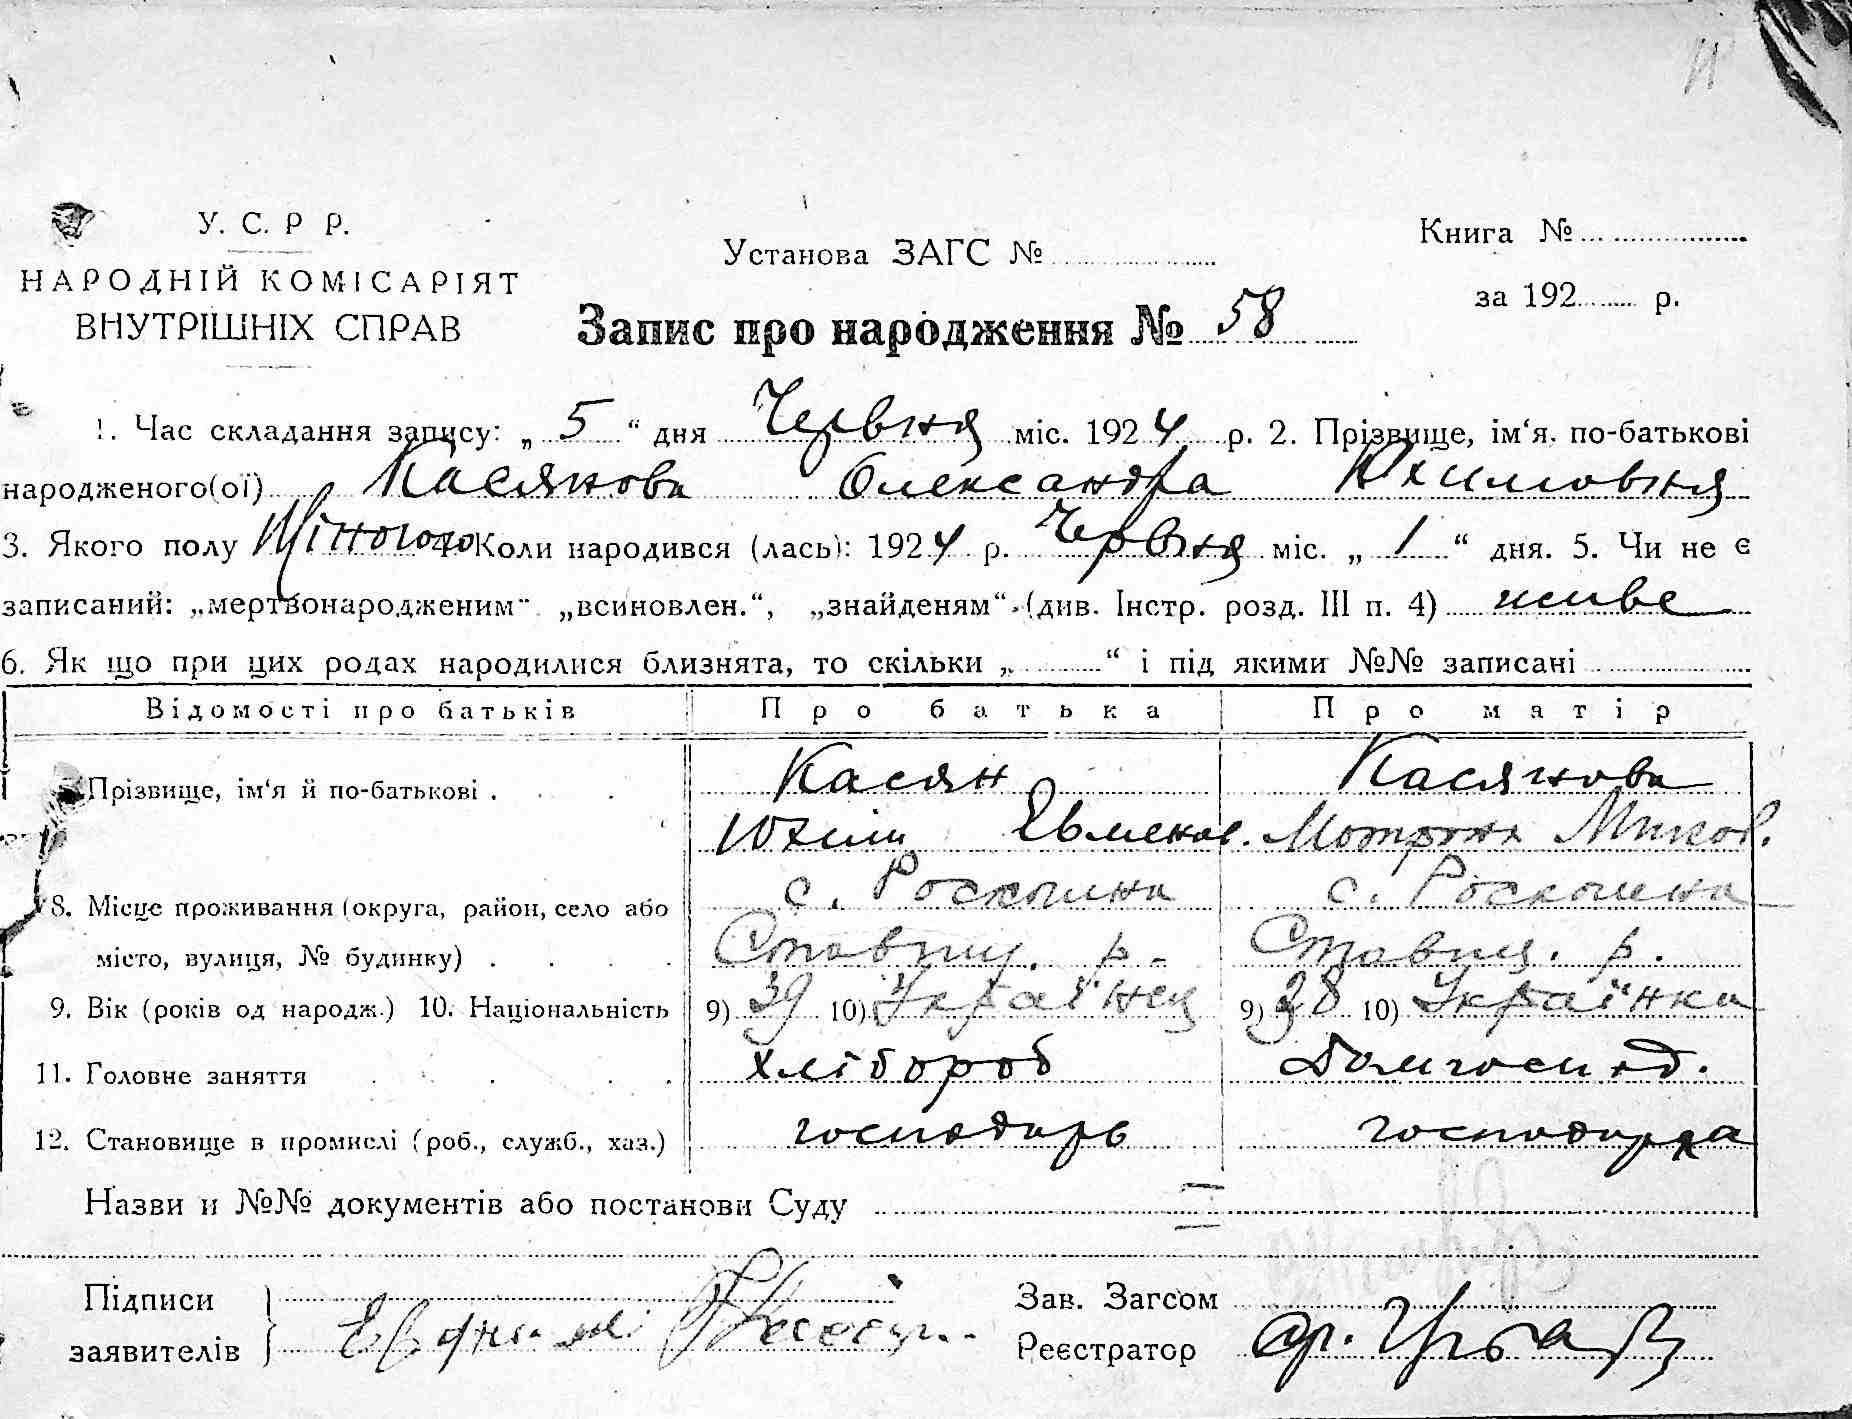 У. С. Р Р.
НАРОДНІЙ КОМІСАРІЯТ
ВНУТРІШНІХ СПРАВ
Установа ЗАГС №
Книга №
за 192 р.
Запис про народження № 58
1. Час складання запису: „ 5 “ дня Червня міс. 1924 р. 2. Прізвище, ім‘я. по-батькові
народженого(ої) Касянова Олександра Юхимовня
3. Якого полу Жіночого 4. Коли народився (лась): 1924 р. Червня міс. „ 1 “ дня. 5. Чи не є
записаний: „мертвонародженим“ „всиновлен.“, „знайденям“ (див. Інстр. розд. III п. 4) живе
6. Як що при цих родах народилися близнята, то скільки „ “ і під якими №№ записані
Відомості про батьків Про батька Про матір
Прізвище, ім‘я й по-батькові . Касян Касянова
Юхим Явменов. Мотрона Миков.
8. Місце проживання (округа, район, село або с. Роскошна с. Роскошна
місто, вулиця, № будинку) . Ставищ. р. Ставищ. р.
9. Вік (років од народж.) 10. Національність 9) 39 10) Українец 9) 38 10) Українка
11. Головне заняття хлібороб Домгоспод.
12. Становище в промислі (роб., служб., хаз.) господарь господарка
Назви и №№ документів або постанови Суду
Підписи
заявителів
Зав. Загсом
Реєстратор